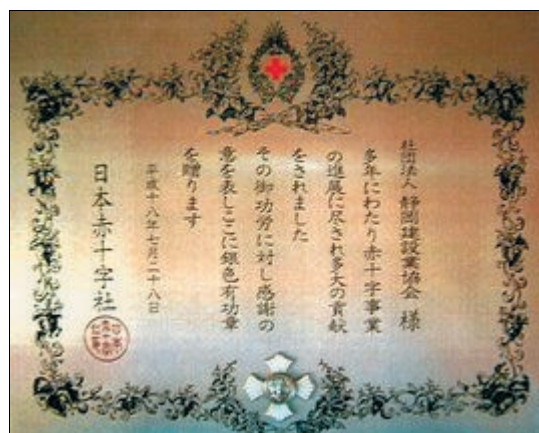 社団法人 静岡建設業協会 様
多年にわたり赤十字事業
の進展に尽され多大の貢献
をされました
その御功労に対し感謝の
意を表しここに銀色有功章
を贈ります
平成十八年七月二十八日
日本赤十字社